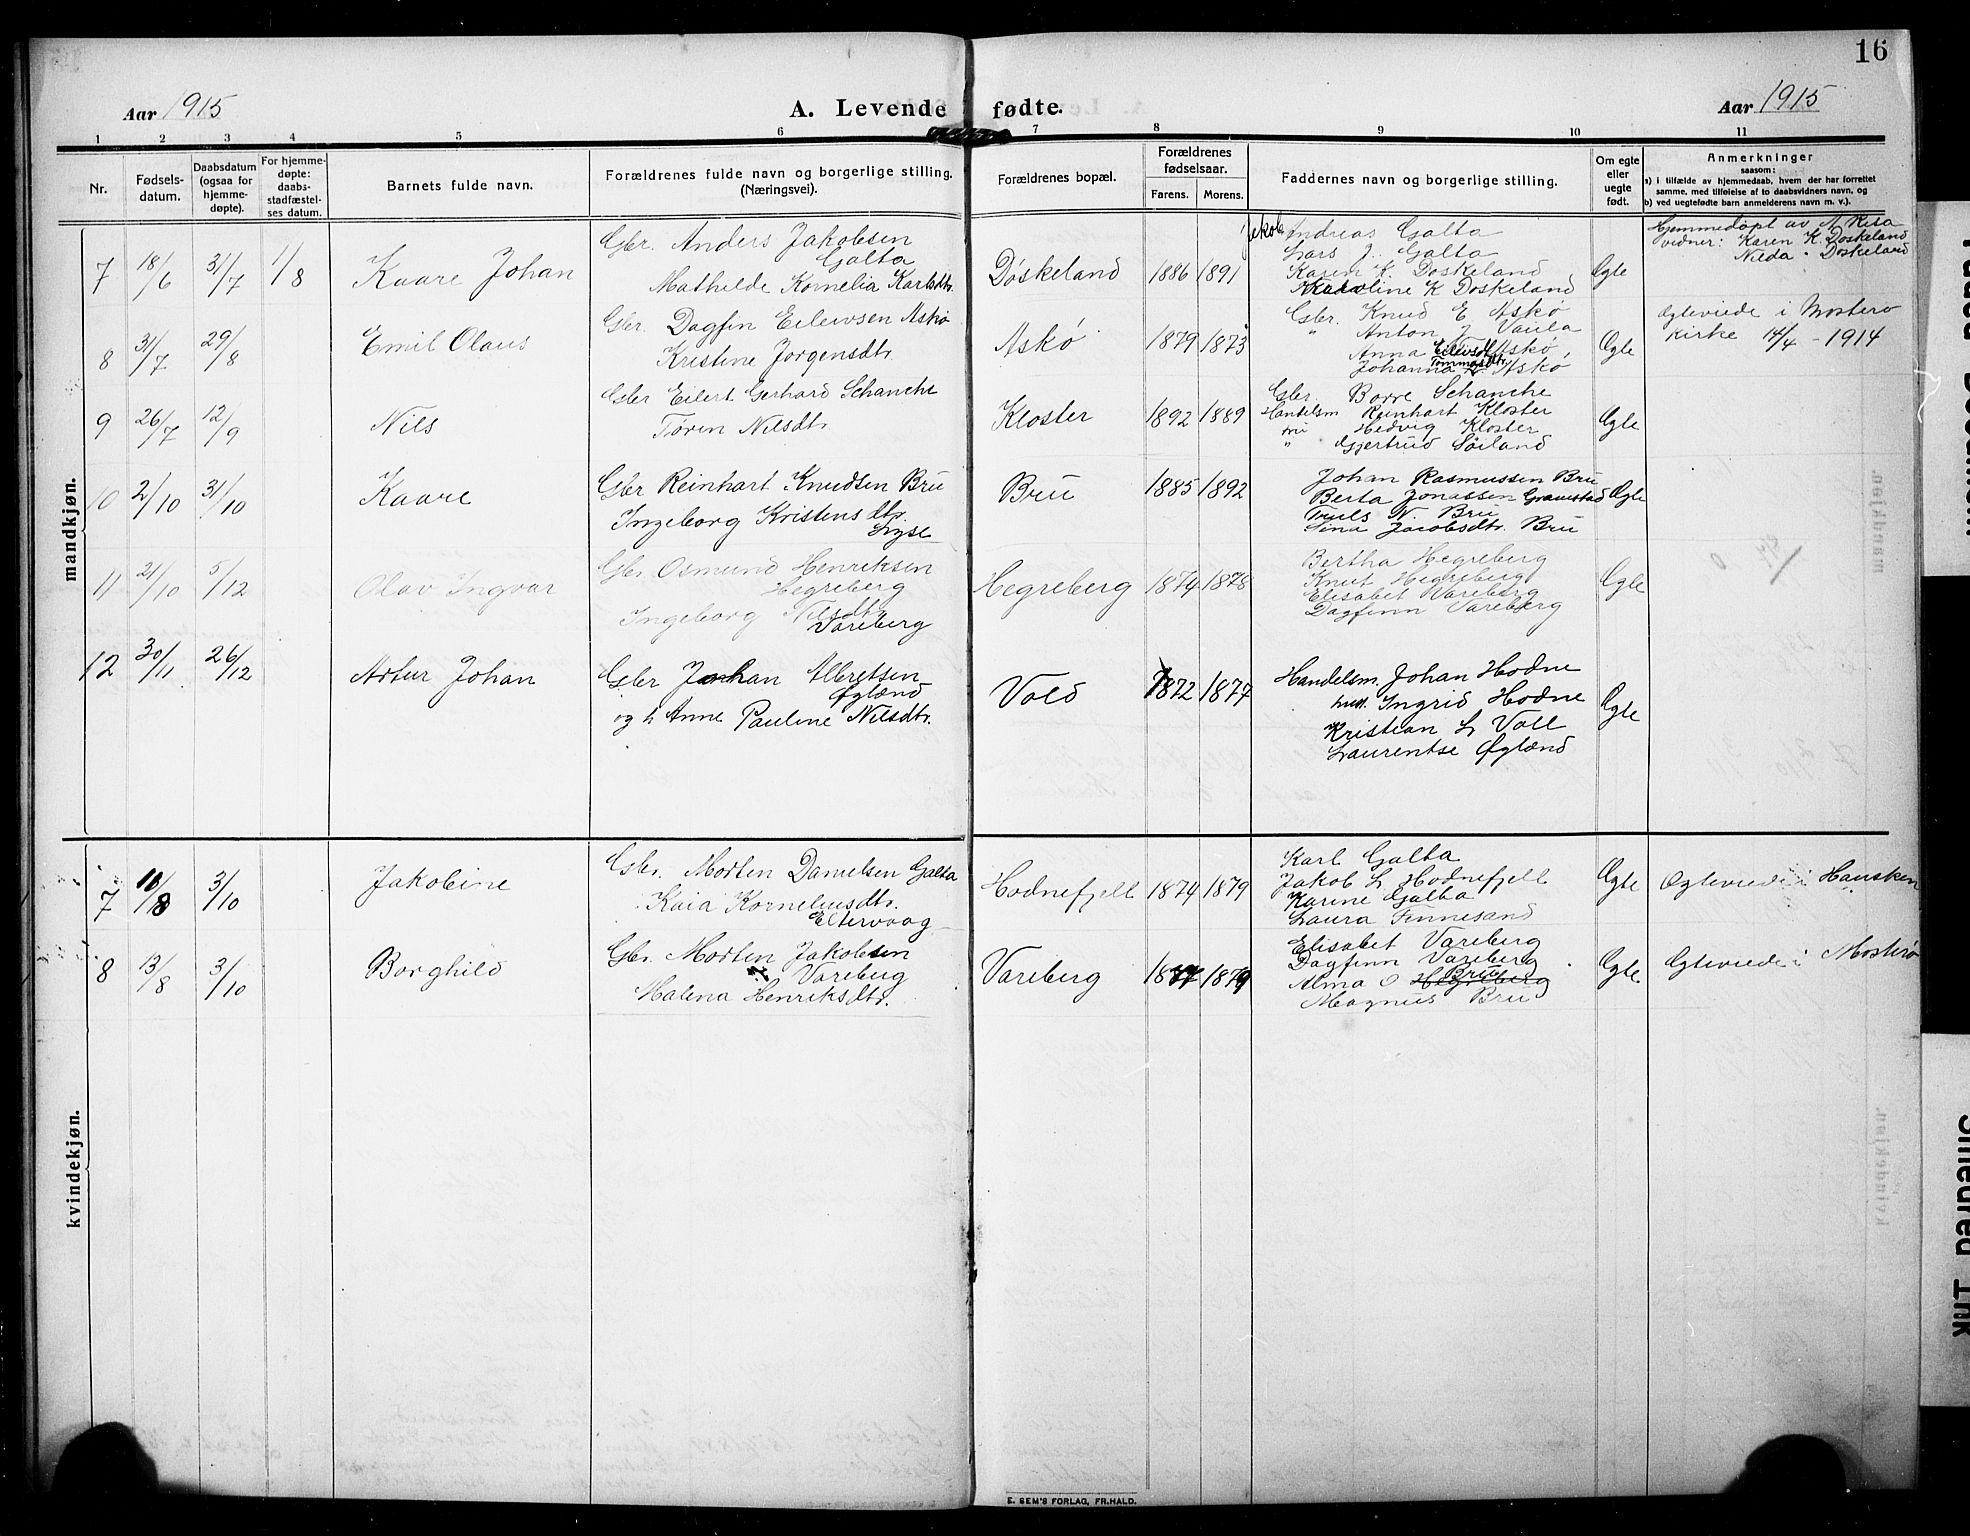 16
Aar 1915
A. Levende fødte.
Aar 1915
1 2 3 4 5 6 7 8 9 10 11
Nr.
Fødsels-
datum.
Daabsdatum
(ogsaa for
hjemme-
døpte).
For hjemme-
døpte:
daabs-
stadfæstel-
ses datum.
Barnets fulde navn.
Forældrenes fulde navn og borgerlige stilling.
(Næringsvei).
Forældrenes bopæl.
Forældrenes
fødselsaar.
Farens. Morens.
Faddernes navn og borgerlige stilling.
Om egte
eller
uegte
født.
Anmerkninger
saasom:
a) i tilfælde av hjemmedaab, hvem der har forrettet
samme, med tilføielse af to daabsvidners navn, og
b) ved uegtefødte barn anmelderens navn m. v.).
mandkjøn.
7 18/6 31/7 1/8 Kaare Johan
Gbr. Anders Jakobsen
Galta
Mathilde Kornelia Karlsdtr.
Døskeland 1886 1891
Jakob Andreas Galta
Lars J. Galta
Karen K. Døskeland
Karoline K Døskeland
Ægte
Hjemmedøpt av
vidner: Karen K. Døskeland
Nilda " Døskeland
8 31/7 29/8 Emil Olaus
Gbr. Dagfin Eilevsen Askø
Kristine Jørgensdtr.
Askø 1879 1873
Gbr. Knud E. Askø
" Anton J. Vaula
Anna Eilevsdtr. Askø
Johanna Tommasdtr. Askø
Ægte
Ægteviede i Mosterø
Kirke 14/4 - 1914
9 26/7 12/9 Nils
Gbr Eilert Gerhard Schanche
Tøren Nilsdtr.
Kloster 1892 1889
Gbr. Børre Schanche
Handelsm Reinhart Kloster
Hedvig Kloster
" Gjertrud Søiland
Ægte
10 2/10 31/10 Kaare
Gbr Reinhart Knudsen Bru
Ingeborg Kristensdtr.
Lyse
Bru 1885 1892
Johan Rasmussen Bru
Berta Jonassen Grannstad
Truls N. Bru
Sina Jacobsdtr. Bru
Ægte
11 21/10 5/12 Olav Ingvar
Gbr. Osmund Henriksen
Hegreberg
Ingeborg Nilsdtr.
Vareberg
Hegreberg 1874 1878
Bertha Hegreberg
Knut Hegreberg
Elisabet Vareberg
Dagfinn Vareberg
Ægte
12 30/11 26/12 Artur Johan
Gbr Johan Albretsen
Øglænd
og h Anne Pauline Nilsdtr.
Vold 1872 1877
Handelsm. Johan Hodne
hust. Ingrid Hodne
Kristian L Voll
Laurentse Øglænd
Ægte
kvindekjøn.
7 10/8 3/10 Jakobine
Gbr. Morten Danielsen Galta
Kaia Korneliusdtr.
Eltervaag
Hodnefjell 1874 1879
Karl Galta
Jakob L Hodnefjell
Karine Galta
Laura Finnesand
Ægte
Ægteviede i Hausken
8 13/8 3/10 Borghild
Gbr. Morten Jakobsen
Vareberg
Malena Henriksdtr.
Vareberg 1877 1879
Elisabet Vareberg
Dagfinn Vareberg
Bru
Alma O Hegreberg
Magnus Bru
Ægte
Ægteviede i Mosterø
E. SEM'S FORLAG, FR.HALD.